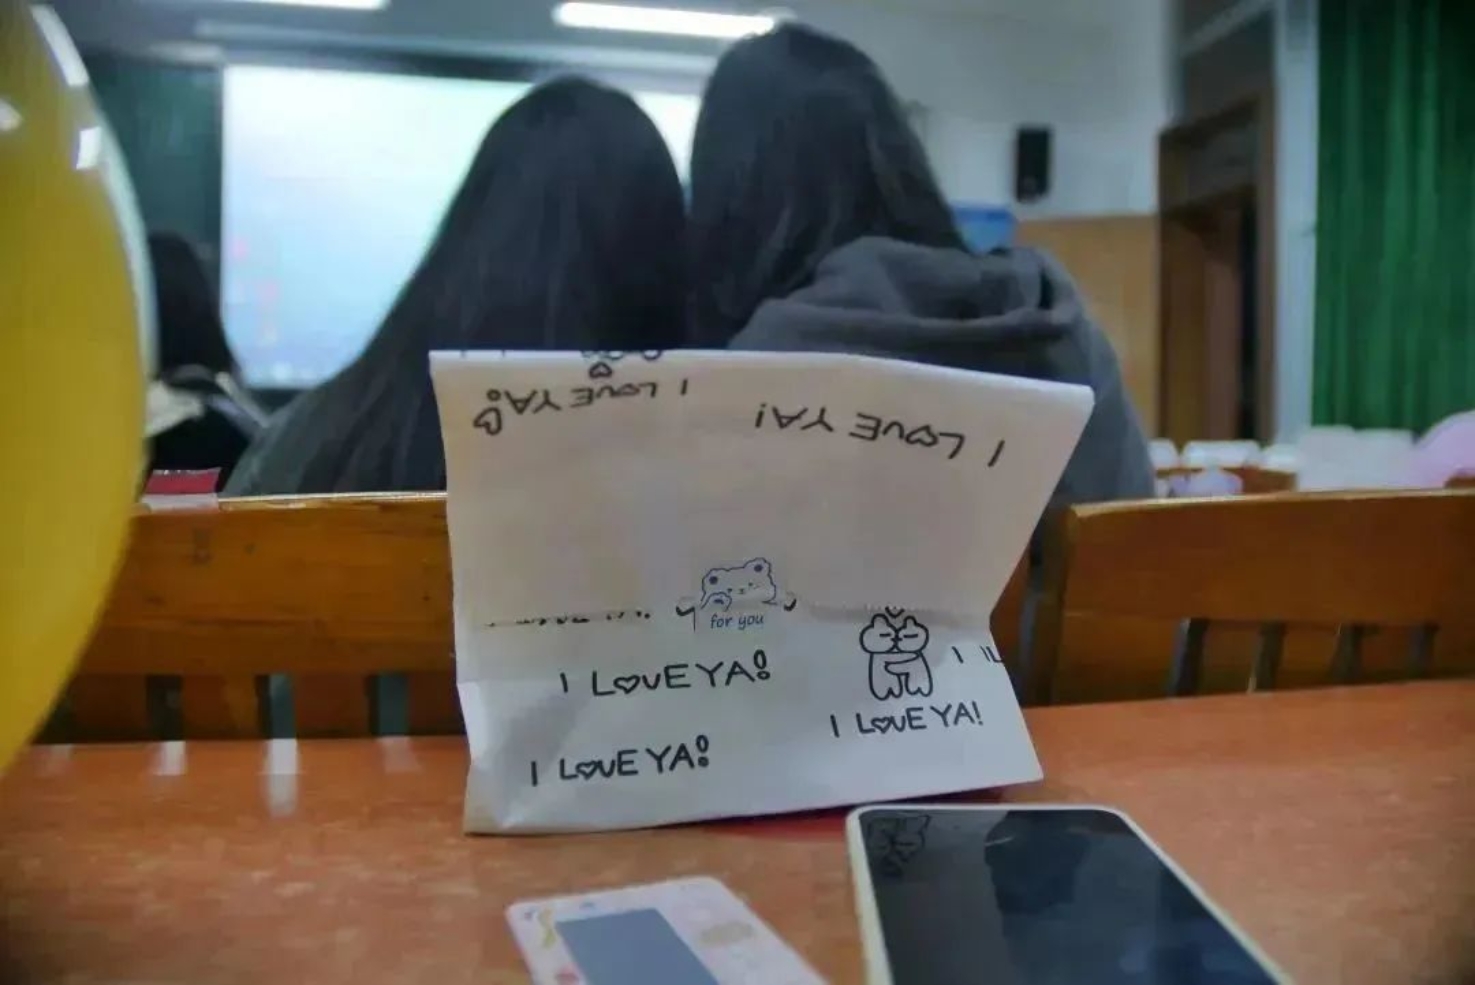 I LOVE YA!
I LOVE YA!
for you
I LOVE YA!
I LOVE YA!
I LOVE YA!